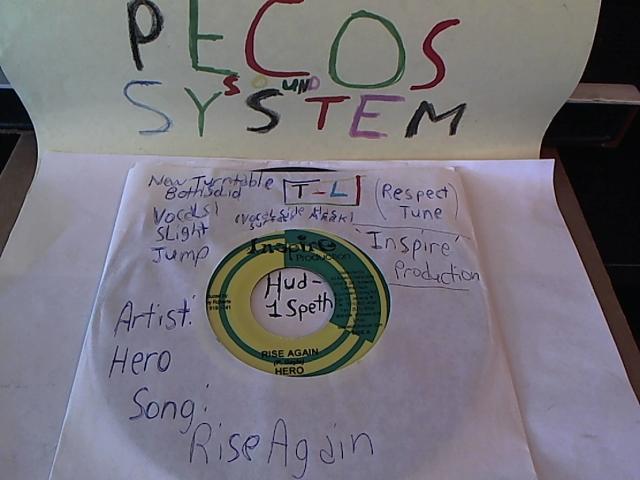 PECOS
SOUND
SYSTEM
New Turntable
T-L
(Respect
Tune)
Vocals!
Slight
Jump
Inspire
Production
'Inspire'
Production
Hud-
1 Speth
Artist:
Hero
RISE AGAIN
HERO
Song:
Rise Again